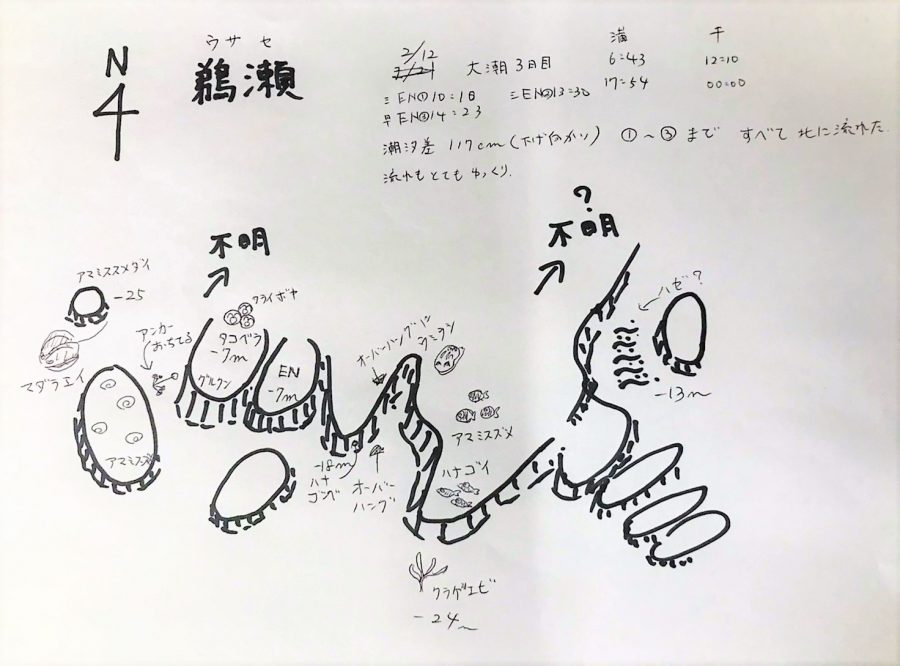 N
ウサセ
鵜瀬
2/12
大潮 3日目
満
干
6:43
12:10
17:54
00:00
ミEN①10:18
ミEN②13:30
早EN③14:23
潮汐差 117cm(下げ
①〜③まで すべて北に流れた.
流れもとてもゆっくり.
不明
?
不明
アマミスズメダイ
-25
マダラエイ
アンカー
おちてる
クライボヤ
タコベラ
-7m
グルクン
EN
-7m
アマミスズ
オーバーハング
-18m
ハナ
ゴンベ
オーバー
ハング
アマミスズメ
ハナゴイ
ハゼ?
-13m
クラゲエビ
-24m